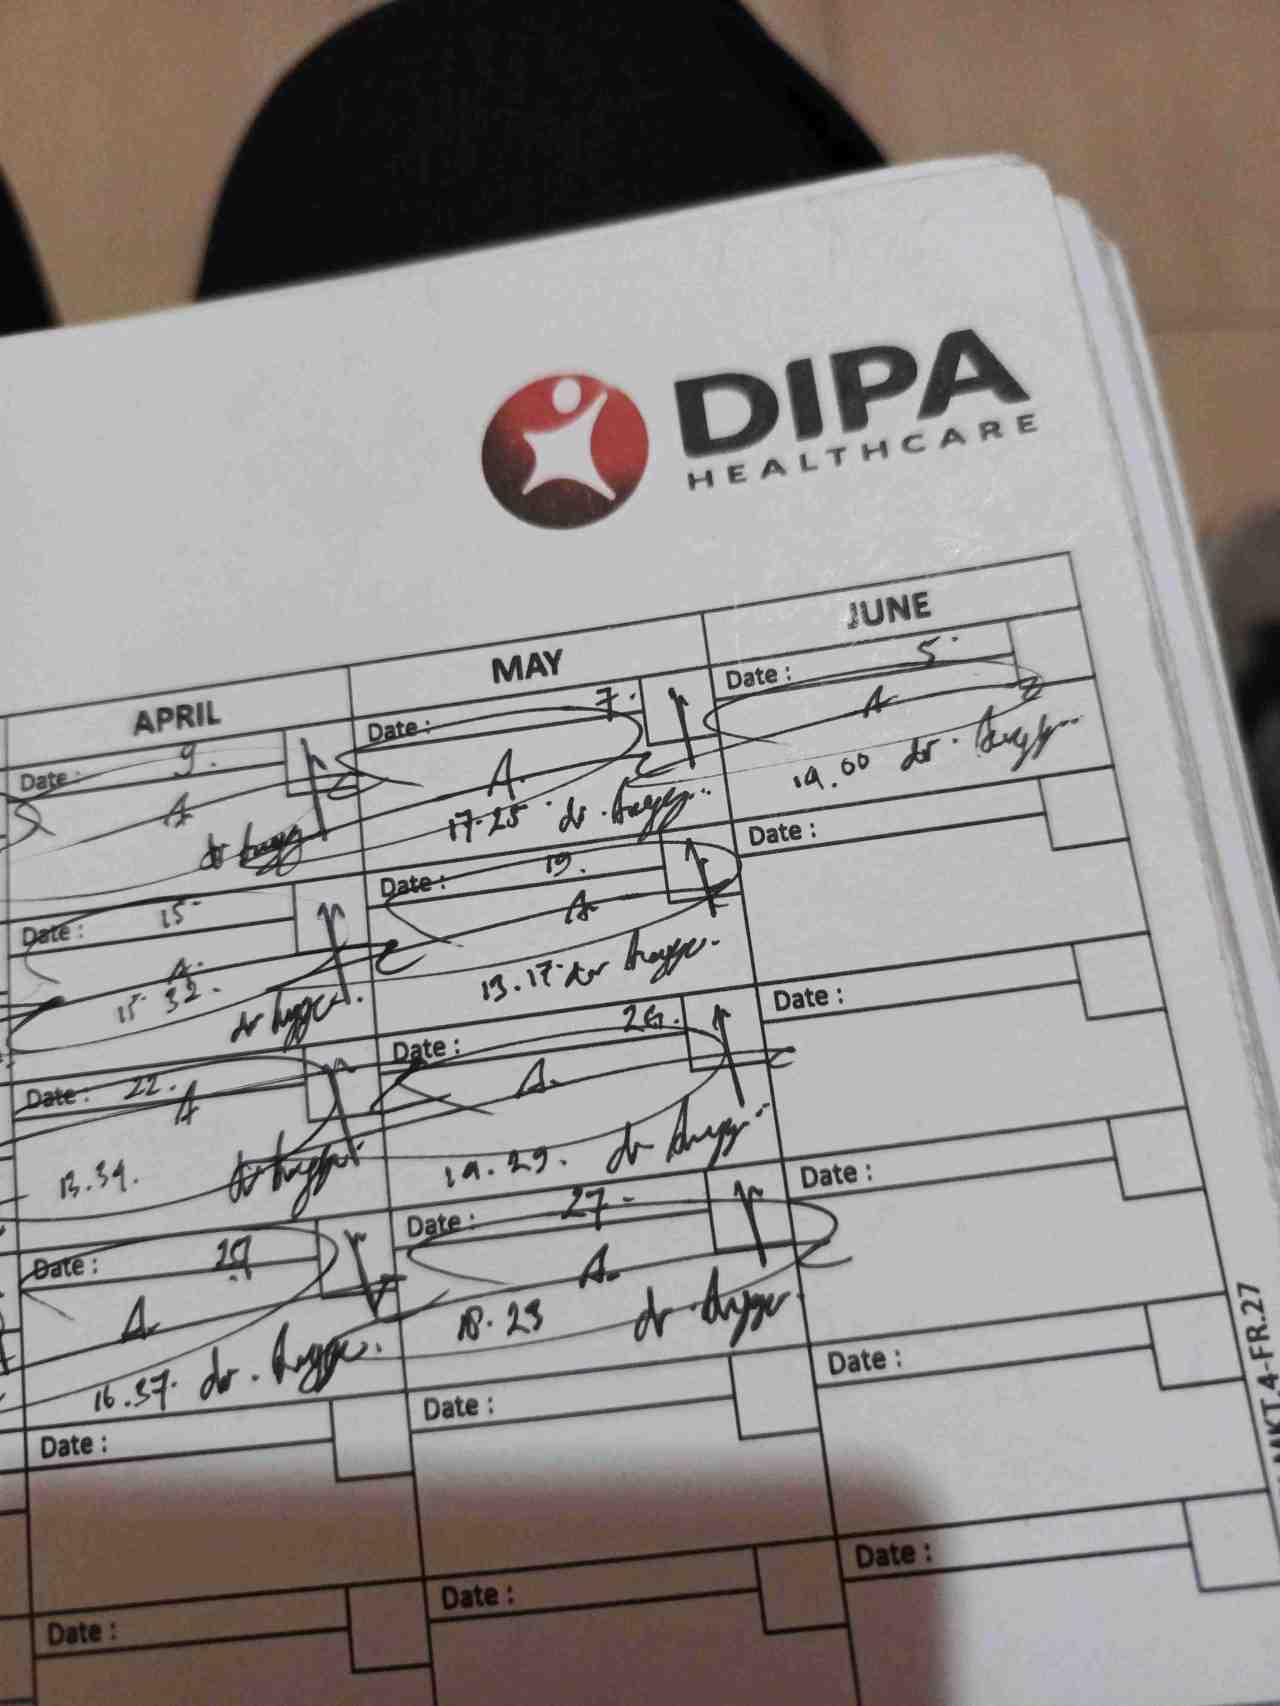 DIPA
HEALTHCARE
APRIL
MAY
JUNE
Date : 9.
A
dr
Date : 7.
A.
17.25 dr.
Date : 5
A
19.00 dr.
Date : 15
A.
15 32. dr
Date : 19.
A.
13.17 dr
Date :
Date : 22.
A
13.39. dr
Date : 26.
A.
19.29. dr
Date :
Date : 29
A.
16.37. dr.
Date : 27
A.
18.23 dr.
Date :
Date :
Date :
Date :
Date :
Date :
Date :
MKT.4-FR.27